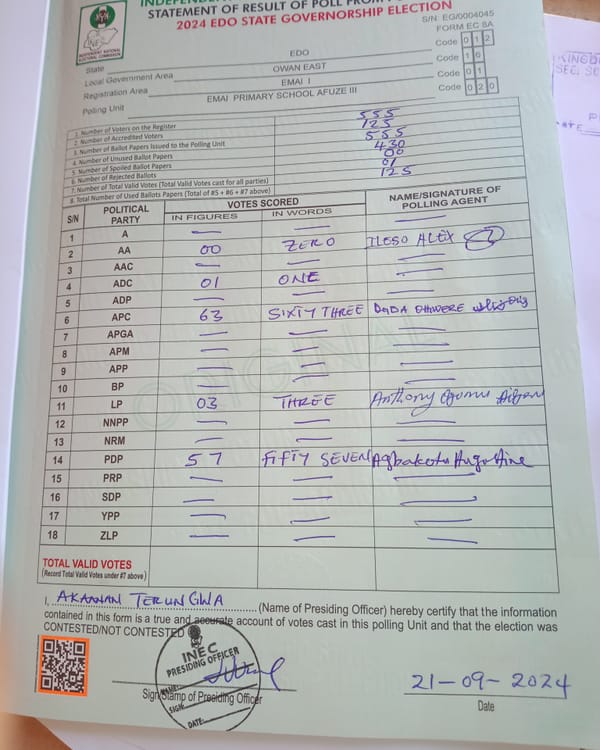 STATEMENT OF RESULT OF POLL FROM PO
2024 EDO STATE GOVERNORSHIP ELECTION
INDEPENDENT NATIONAL
ELECTORAL COMMISSION
S/N EG/0004045
FORM EC 8A
State EDO Code 0 1 2
Local Government Area OWAN EAST Code 1 6
Registration Area EMAI I Code 0 1
Polling Unit EMAI PRIMARY SCHOOL AFUZE III Code 0 2 0
1. Number of Voters on the Register 555
2. Number of Accredited Voters 125
3. Number of Ballot Papers Issued to the Polling Unit 555
4. Number of Unused Ballot Papers 430
5. Number of Spoiled Ballot Papers 00
6. Number of Rejected Ballots 01
7. Number of Total Valid Votes (Total Valid Votes cast for all parties)
8. Total Number of Used Ballot Papers (Total of #5 + #6 + #7 above) 125
S/N POLITICAL PARTY VOTES SCORED NAME/SIGNATURE OF POLLING AGENT
IN FIGURES IN WORDS
1 A — — —
2 AA 00 ZERO ILESO ALEX
3 AAC — — —
4 ADC 01 ONE —
5 ADP — — —
6 APC 63 SIXTY THREE DADA
7 APGA — — —
8 APM — — —
9 APP — — —
10 BP — — —
11 LP 03 THREE Anthony
12 NNPP — — —
13 NRM — — —
14 PDP 57 FIFTY SEVEN
15 PRP — — —
16 SDP — — —
17 YPP — — —
18 ZLP — — —
TOTAL VALID VOTES
(Record Total Valid Votes under #7 above)
I, AKAANAN TERUNGWA (Name of Presiding Officer) hereby certify that the information
contained in this form is a true and accurate account of votes cast in this polling Unit and that the election was
CONTESTED/NOT CONTESTED
INEC
PRESIDING OFFICER
NAME:
SIGN:
DATE:
Sign/Stamp of Presiding Officer
21-09-2024
Date
ORIGINAL